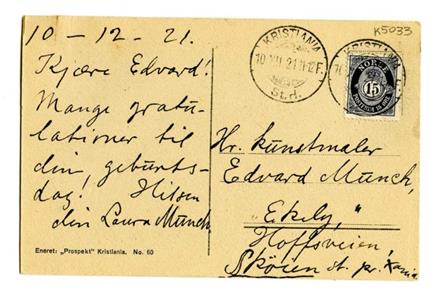 10 - 12 - 21.
K5033
KRISTIANIA
10 XII 21 11-12 F.
St. H.
KRISTIANIA
NORGE
15
Kjære Edvard!
Mange gratu-
lationer til
din geburts-
dag! Hilsen
din Laura Munch
Hr. kunstmaler
Edvard Munch,
"Ekely,"
Hoffsveien,
Skøien st. pr. Kr.ania
Eneret: „Prospekt" Kristiania. No. 60